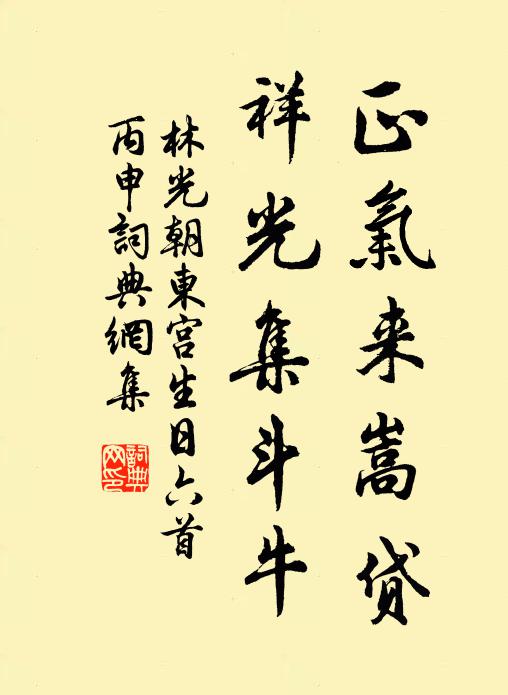 正氣来嵩贷
祥光集斗牛
林光朝東宫生日六首
丙申詞典網集
詞典网印